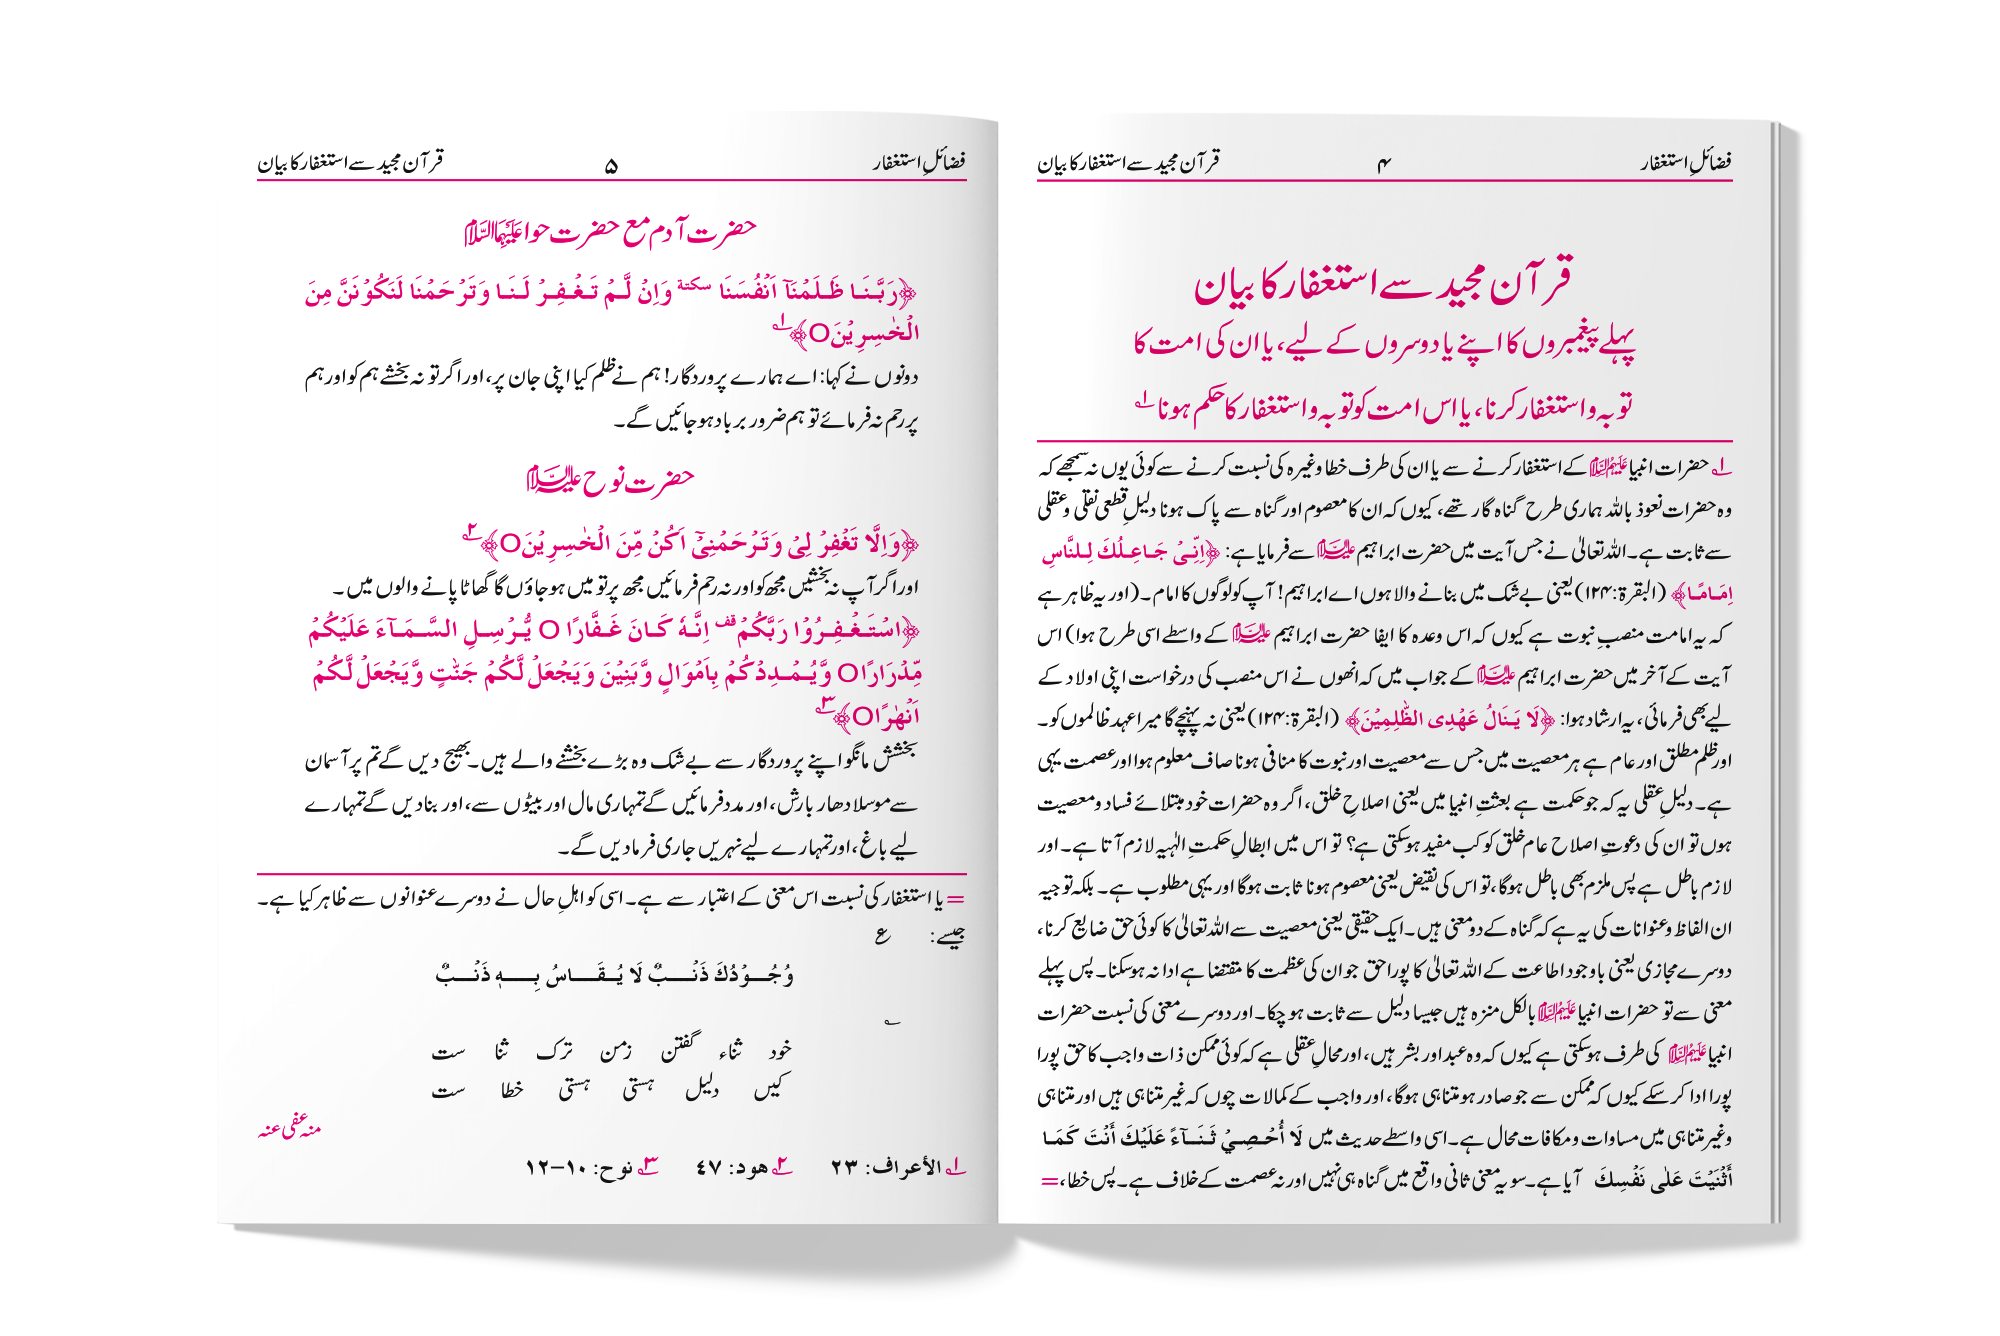 فضائلِ استغفار ۴ قرآن مجید سے استغفار کا بیان
قرآن مجید سے استغفار کا بیان
پہلے پیغمبروں کا اپنے یا دوسروں کے لیے، یا ان کی امت کا
توبہ و استغفار کرنا، یا اس امت کو توبہ و استغفار کا حکم ہونا ؂۱
؂۱ حضرات انبیا علیہم السلام کے استغفار کرنے سے یا ان کی طرف خطا وغیرہ کی نسبت کرنے سے کوئی یوں نہ سمجھے کہ
وہ حضرات نعوذ باللہ ہماری طرح گناہ گار تھے، کیوں کہ ان کا معصوم اور گناہ سے پاک ہونا دلیلِ قطعی نقلی و عقلی
سے ثابت ہے۔ اللہ تعالیٰ نے جس آیت میں حضرت ابراہیم علیہ السلام سے فرمایا ہے: ﴿اِنِّیْ جَاعِلُكَ لِلنَّاسِ
اِمَامًا﴾ (البقرۃ: ۱۲۴) یعنی بے شک میں بنانے والا ہوں اے ابراہیم! آپ کو لوگوں کا امام۔ (اور یہ ظاہر ہے
کہ یہ امامت منصبِ نبوت ہے کیوں کہ اس وعدہ کا ایفا حضرت ابراہیم علیہ السلام کے واسطے اسی طرح ہوا) اس
آیت کے آخر میں حضرت ابراہیم علیہ السلام کے جواب میں کہ انھوں نے اس منصب کی درخواست اپنی اولاد کے
لیے بھی فرمائی، یہ ارشاد ہوا: ﴿لَا یَنَالُ عَهْدِی الظّٰلِمِیْنَ﴾ (البقرۃ: ۱۲۴) یعنی نہ پہنچے گا میرا عہد ظالموں کو۔
اور ظلم مطلق اور عام ہے ہر معصیت میں جس سے معصیت اور نبوت کا منافی ہونا صاف معلوم ہوا اور عصمت یہی
ہے۔ دلیلِ عقلی یہ کہ جو حکمت ہے بعثتِ انبیا میں یعنی اصلاحِ خلق، اگر وہ حضرات خود مبتلائے فساد و معصیت
ہوں تو ان کی دعوتِ اصلاح عام خلق کو کب مفید ہوسکتی ہے؟ تو اس میں ابطالِ حکمتِ الٰہیہ لازم آتا ہے۔ اور
لازم باطل ہے پس ملزم بھی باطل ہوگا، تو اس کی نقیض یعنی معصوم ہونا ثابت ہوگا اور یہی مطلوب ہے۔ بلکہ توجیہ
ان الفاظ و عنوانات کی یہ ہے کہ گناہ کے دو معنی ہیں۔ ایک حقیقی یعنی معصیت سے اللہ تعالیٰ کا کوئی حق ضایع کرنا،
دوسرے مجازی یعنی باوجود اطاعت کے اللہ تعالیٰ کا پورا حق جو ان کی عظمت کا مقتضا ہے ادا نہ ہوسکنا۔ پس پہلے
معنی سے تو حضرات انبیا علیہم السلام بالکل منزہ ہیں جیسا دلیل سے ثابت ہو چکا۔ اور دوسرے معنی کی نسبت حضرات
انبیا علیہم السلام کی طرف ہوسکتی ہے کیوں کہ وہ عبد اور بشر ہیں، اور محالِ عقلی ہے کہ کوئی ممکن ذات واجب کا حق پورا
پورا ادا کر سکے کیوں کہ ممکن سے جو صادر ہو متناہی ہوگا، اور واجب کے کمالات چوں کہ غیر متناہی ہیں اور متناہی
و غیر متناہی میں مساوات و مکافات محال ہے۔ اسی واسطے حدیث میں لَا أُحْصِيْ ثَنَآءً عَلَيْكَ أَنْتَ كَمَا
أَثْنَيْتَ عَلٰی نَفْسِكَ آیا ہے۔ سو یہ معنی ثانی واقع میں گناہ ہی نہیں اور نہ عصمت کے خلاف ہے۔ پس خطا، =
فضائلِ استغفار ۵ قرآن مجید سے استغفار کا بیان
حضرت آدم مع حضرت حوا علیہما السلام
﴿رَبَّنَا ظَلَمْنَآ اَنْفُسَنَا سکتة وَاِنْ لَّمْ تَغْفِرْ لَنَا وَتَرْحَمْنَا لَنَكُوْنَنَّ مِنَ
الْخٰسِرِیْنَO﴾ ؂۱
دونوں نے کہا: اے ہمارے پروردگار! ہم نے ظلم کیا اپنی جان پر، اور اگر تو نہ بخشے ہم کو اور ہم
پر رحم نہ فرمائے تو ہم ضرور برباد ہوجائیں گے۔
حضرت نوح علیہ السلام
﴿وَاِلَّا تَغْفِرْ لِیْ وَتَرْحَمْنِیْٓ اَكُنْ مِّنَ الْخٰسِرِیْنَO﴾ ؂۲
اور اگر آپ نہ بخشیں مجھ کو اور نہ رحم فرمائیں مجھ پر تو میں ہوجاؤں گا گھاٹا پانے والوں میں۔
﴿اسْتَغْفِرُوْا رَبَّكُمْ قف اِنَّهٗ كَانَ غَفَّارًا O یُّرْسِلِ السَّمَآءَ عَلَیْكُمْ
مِّدْرَارًاO وَّیُمْدِدْكُمْ بِاَمْوَالٍ وَّبَنِیْنَ وَیَجْعَلْ لَّكُمْ جَنّٰتٍ وَّیَجْعَلْ لَّكُمْ
اَنْهٰرًاO﴾ ؂۳
بخشش مانگو اپنے پروردگار سے بے شک وہ بڑے بخشنے والے ہیں۔ بھیج دیں گے تم پر آسمان
سے موسلا دھار بارش، اور مدد فرمائیں گے تمہاری مال اور بیٹوں سے، اور بنا دیں گے تمہارے
لیے باغ، اور تمہارے لیے نہریں جاری فرمادیں گے۔
= یا استغفار کی نسبت اس معنی کے اعتبار سے ہے۔ اسی کو اہلِ حال نے دوسرے عنوانوں سے ظاہر کیا ہے۔
جیسے: ع
وُجُوْدُكَ ذَنْبٌ لَا یُقَاسُ بِهٖ ذَنْبٌ
؂
خود ثناء گفتن زمن ترک ثنا ست
کیں دلیل ہستی ہستی خطا ست
منہ عفی عنہ
؂۱ الأعراف: ۲۳ ؂۲ هود: ٤٧ ؂۳ نوح: ۱۰–۱۲